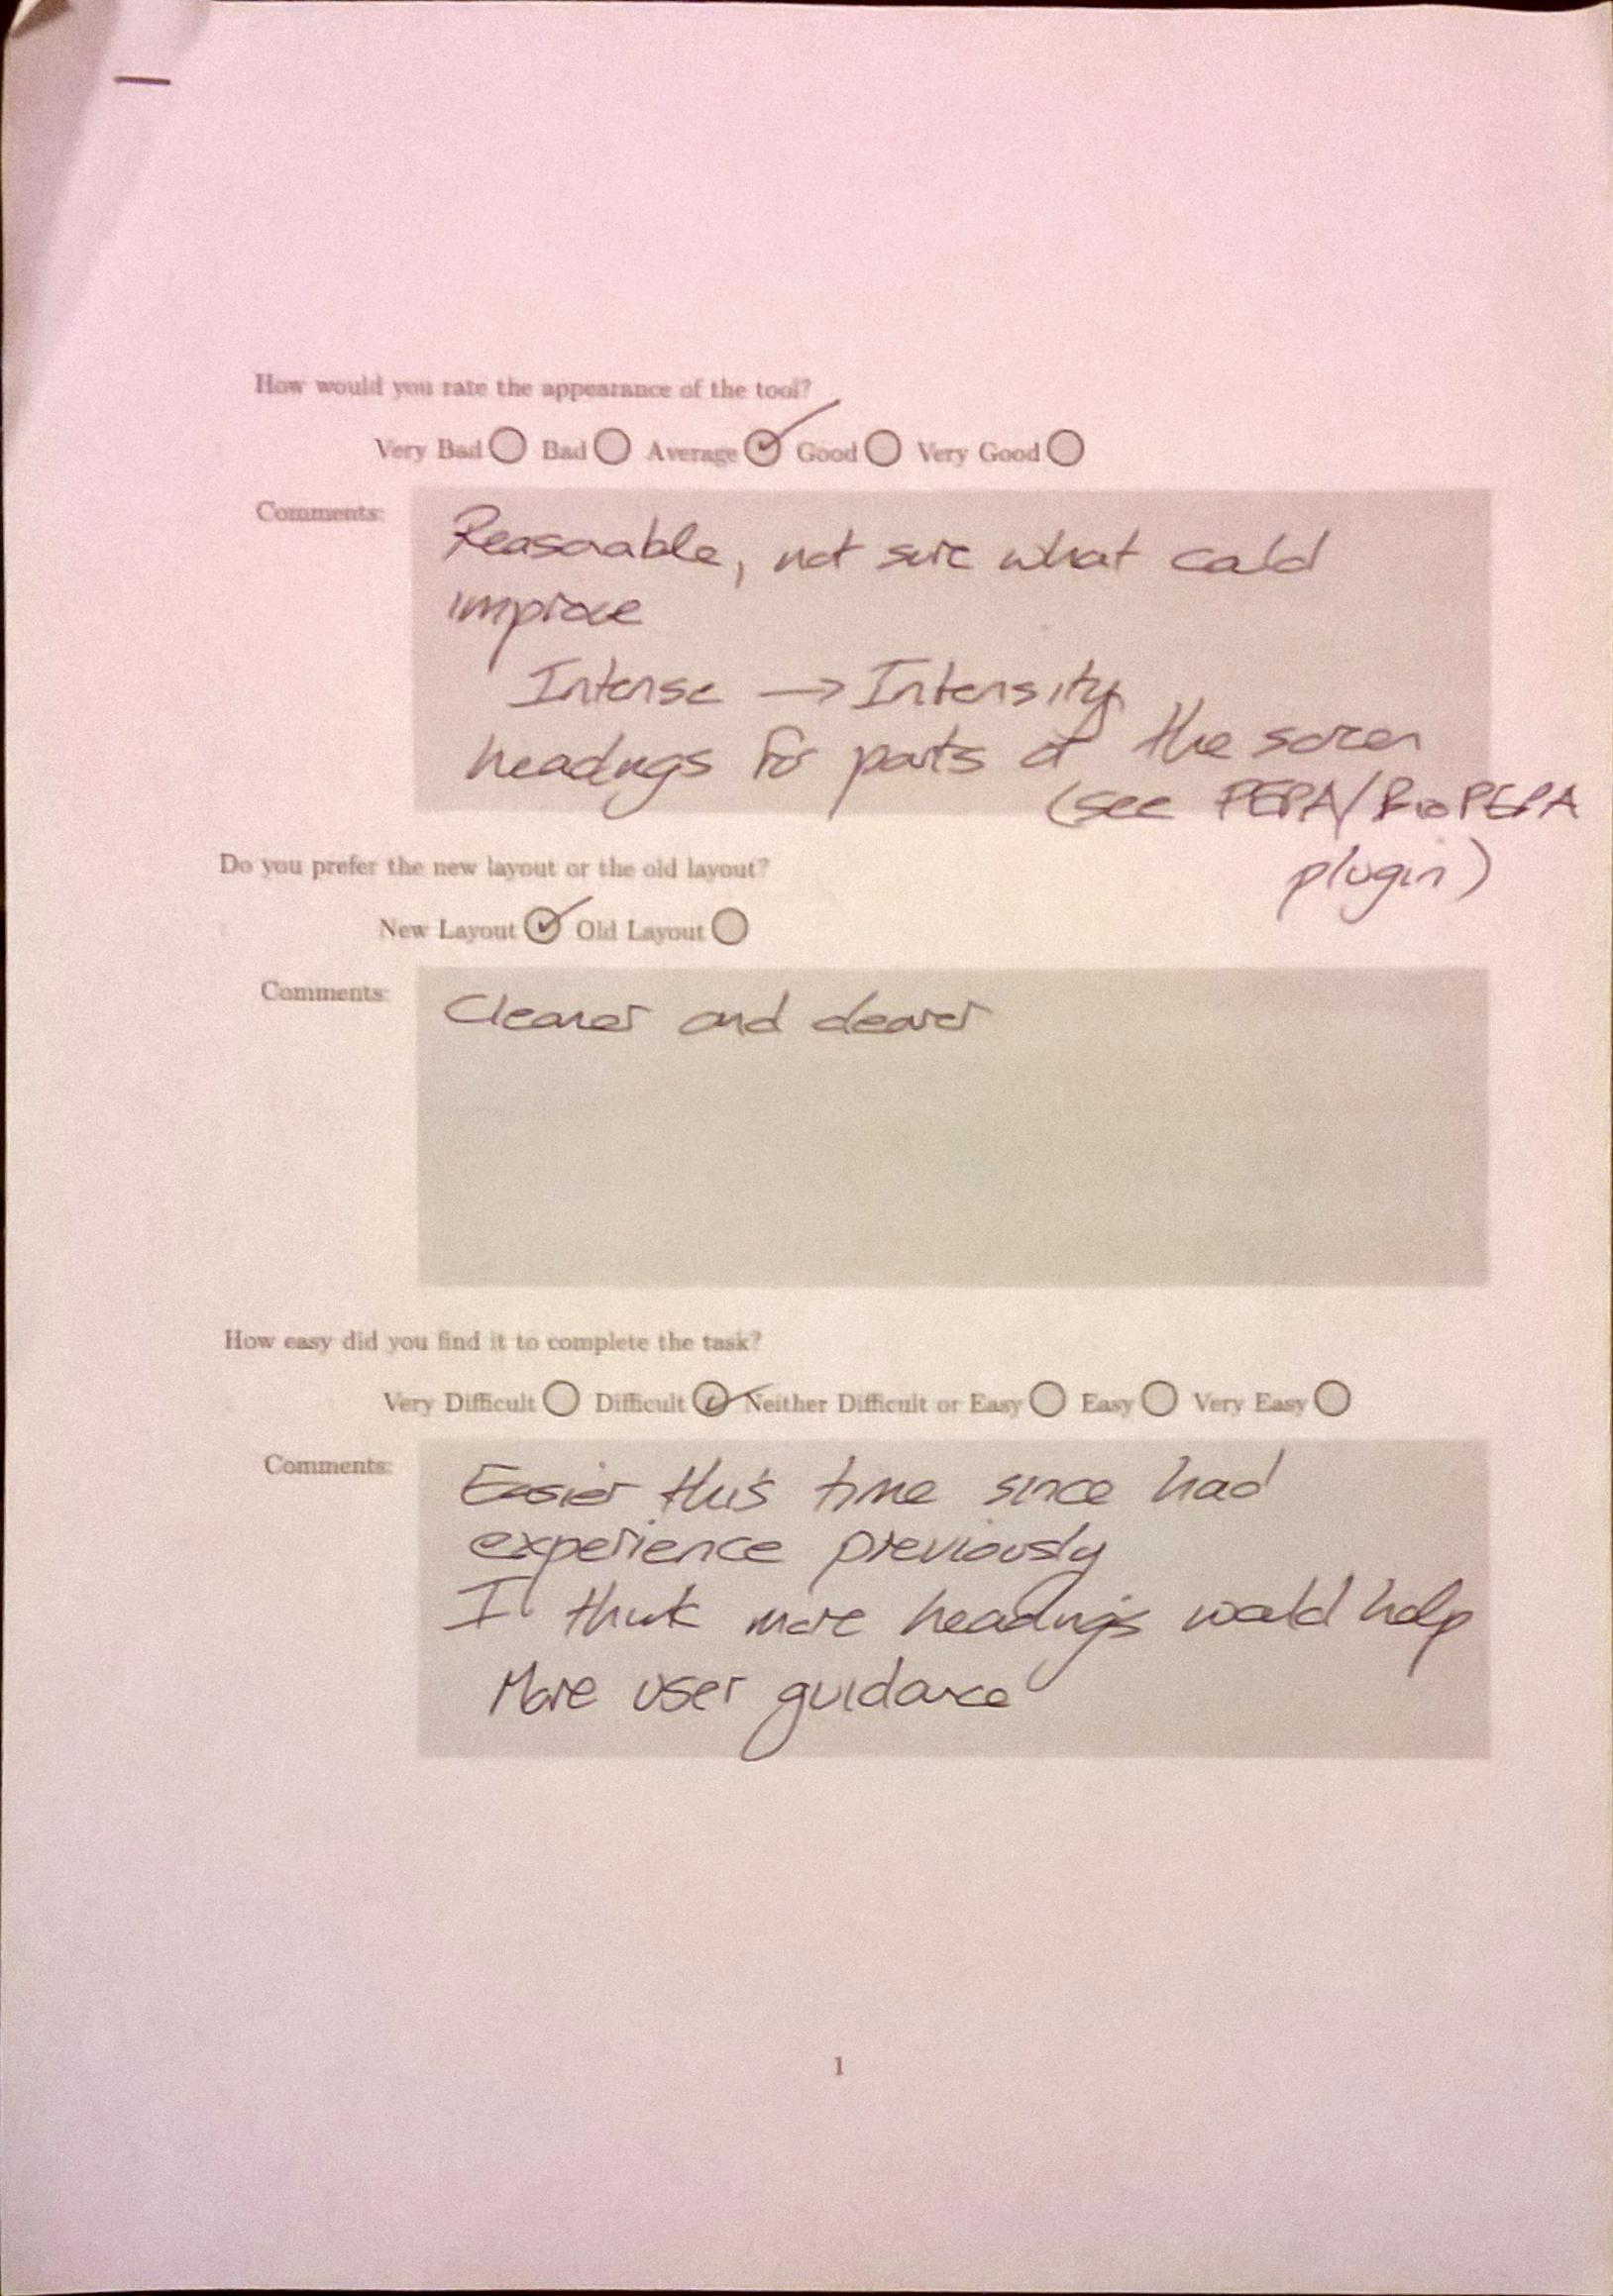 How would you rate the appearance of the tool?
Very Bad Bad Average Good Very Good
Comments:
Reasonable, not sure what could
improve
Intense → Intensity
headings for parts of the screen
(see PEPA/BioPEPA
plugin)
Do you prefer the new layout or the old layout?
New Layout Old Layout
Comments:
Cleaner and clearer
How easy did you find it to complete the task?
Very Difficult Difficult Neither Difficult or Easy Easy Very Easy
Comments:
Easier this time since had
experience previously
I think more headings would help
More user guidance
1